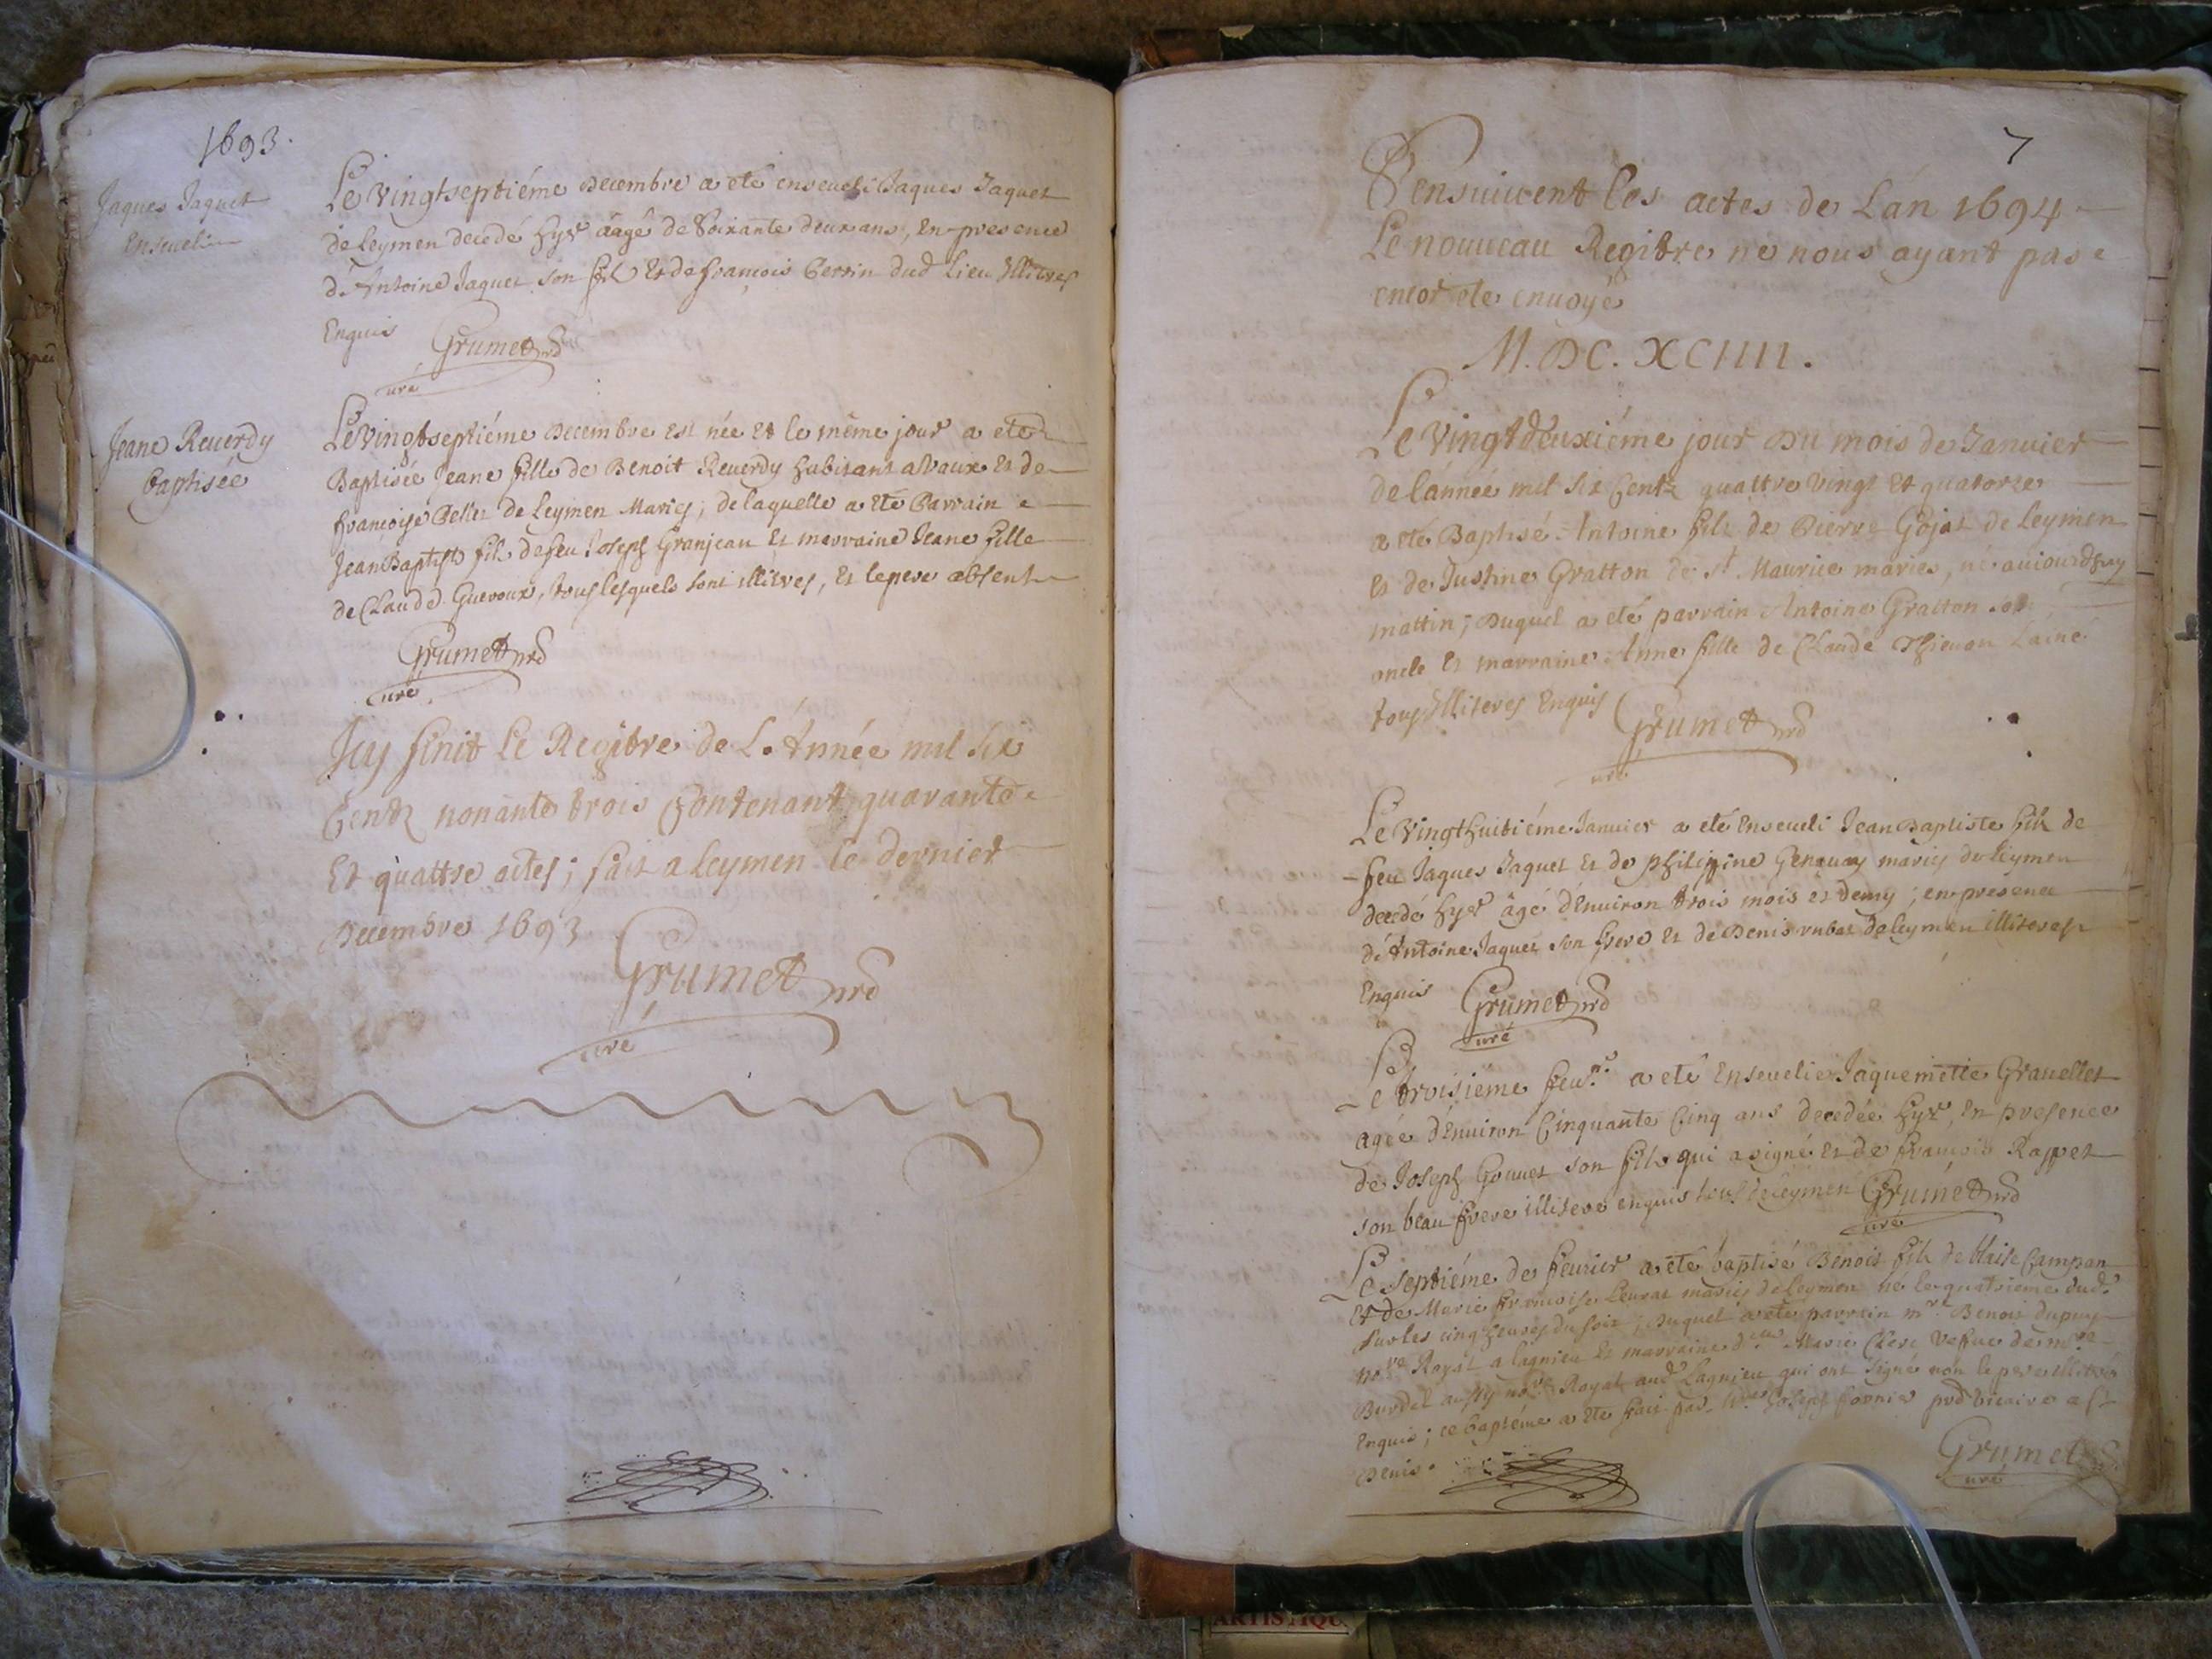 1693.
Jaques Jaquet
Enseueli
Le Vingtseptiéme Decembre a eté enseueli Jaques Jaquet
de Leymen decedé hyer aâgé de Soixante deux ans, En presence
d'Antoine Jaquet son filz Et de françois Perrin dud Lieu Illitres
Enquis Grumet prd
curé
Jeane Reuerdy
baptisée
Le Vingtseptiéme Decembre est née Et le méme jour a eté
Baptisée Jeane fille de Benoit Reuerdy habitant a Vaux Et de
françoise Pellet de Leymen Mariés; de laquelle a eté Parrain
Jean Baptist filz de feu Joseph Granjean Et marraine Jeane fille
de Claude Gueroux, tous lesquels sont illitres, Et le pere absent
Grumet prd
curé
Icy finit Le Regitre de L'Année mil six
Centz nonante trois Contenant quarante
Et quattre actes; fait a Leymen le dernier
Decembre 1693
Grumet prd
curé
7
S'ensuiuent les actes de L'an 1694
Le nouueau Regitre ne nous ayant pas
encor eté enuoyé
M. DC. XCIIII.
Le Vingtdeuxiéme jour Du mois de Januier
de l'année mil six Centz quattre vingt Et quatorze
a eté Baptisé Antoine filz de Pierre Gojat de Leymen
Et de Justine Gratton de St Maurice mariés, né auiourdhuy
mattin; Duquel a eté parrain Antoine Gratton son
oncle Et marraine Anne fille de Claude Thieuon L'ainé
tous Illiteres Enquis Grumet prd
curé
Le Vingthuitiéme Januier a eté Enseueli Jean Baptiste filz de
feu Jaques Jaquet Et de philippine Genquay mariés de Leymen
decedé hyer âgé d'Enuiron trois mois et demy; en presence
d'Antoine Jaquet son frere Et de Denis rubat de Leymen illiteres
Enquis Grumet prd
curé
Le troisiéme feur. a eté Enseuelie Jaquemette Grauellet
agée d'Enuiron Cinquante Cinq ans decedée hyer, En presence
de Joseph Gouuet son filz qui a signé et de françois Rappet
son beau frere illitere enquis tous de Leymen Grumet prd
curé
Le Septiéme de feurier a eté baptisé Benoit filz de blaise Campan
Et de Marie françoise Leurat mariés de Leymen né le quatrieme dud.
sur les cinq heures du soir, Duquel a eté parrain mr. Benoit dupuy
nore Royal a lagnieu Et marraine dlle Marie Clerc Vefue de mre
Burdel aussy nore Royal aud Lagnieu qui ont signé non le pere illitere
Enquis; ce baptéme a eté fait par mre Joseph fornier prd vicaire a St
Denis.
Grumet
curé
ARTISTIQU